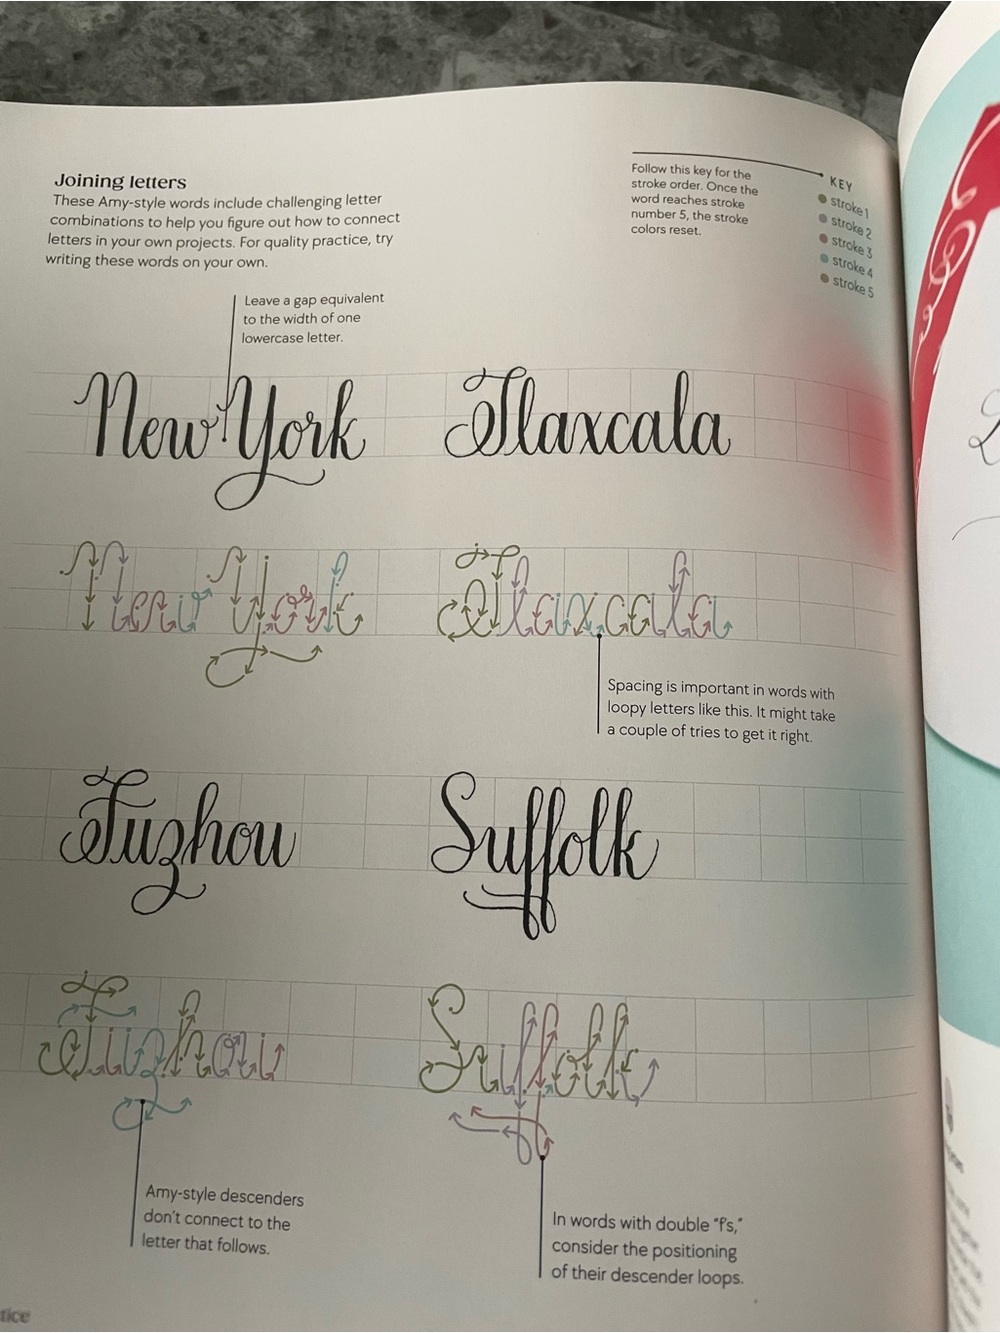 Joining letters
These Amy-style words include challenging letter
combinations to help you figure out how to connect
letters in your own projects. For quality practice, try
writing these words on your own.
Follow this key for the
stroke order. Once the
word reaches stroke
number 5, the stroke
colors reset.
KEY
stroke 1
stroke 2
stroke 3
stroke 4
stroke 5
Leave a gap equivalent
to the width of one
lowercase letter.
New York
Tlaxcala
New York
Tlaxcala
Spacing is important in words with
loopy letters like this. It might take
a couple of tries to get it right.
Fuzhou
Suffolk
Fuzhou
Suffolk
Amy-style descenders
don't connect to the
letter that follows.
In words with double "f's,"
consider the positioning
of their descender loops.
tice